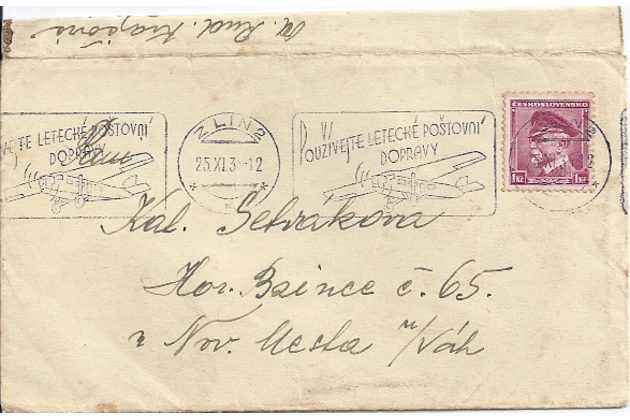 Rud. Krajčovič
POUŽÍVEJTE LETECKÉ POŠTOVNÍ
DOPRAVY
ZLÍN 2
25.XI.3 -12
POUŽÍVEJTE LETECKÉ POŠTOVNÍ
DOPRAVY
ČESKOSLOVENSKO
1Kč 1Kč
Kat. Šetrákova
Hor. Bzince č. 65.
Nov. Mesta n/Váh